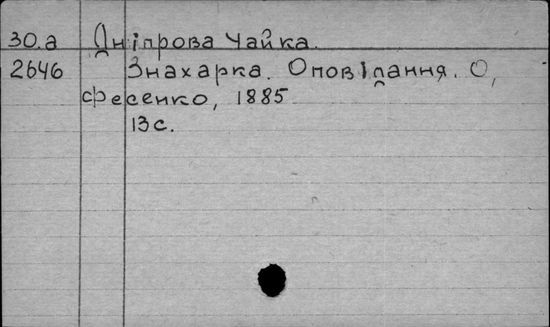 30.а Дніпрова Чайка.
2646 Знахарка. Оповідання. О,
Фесенко, 1885
13 с.